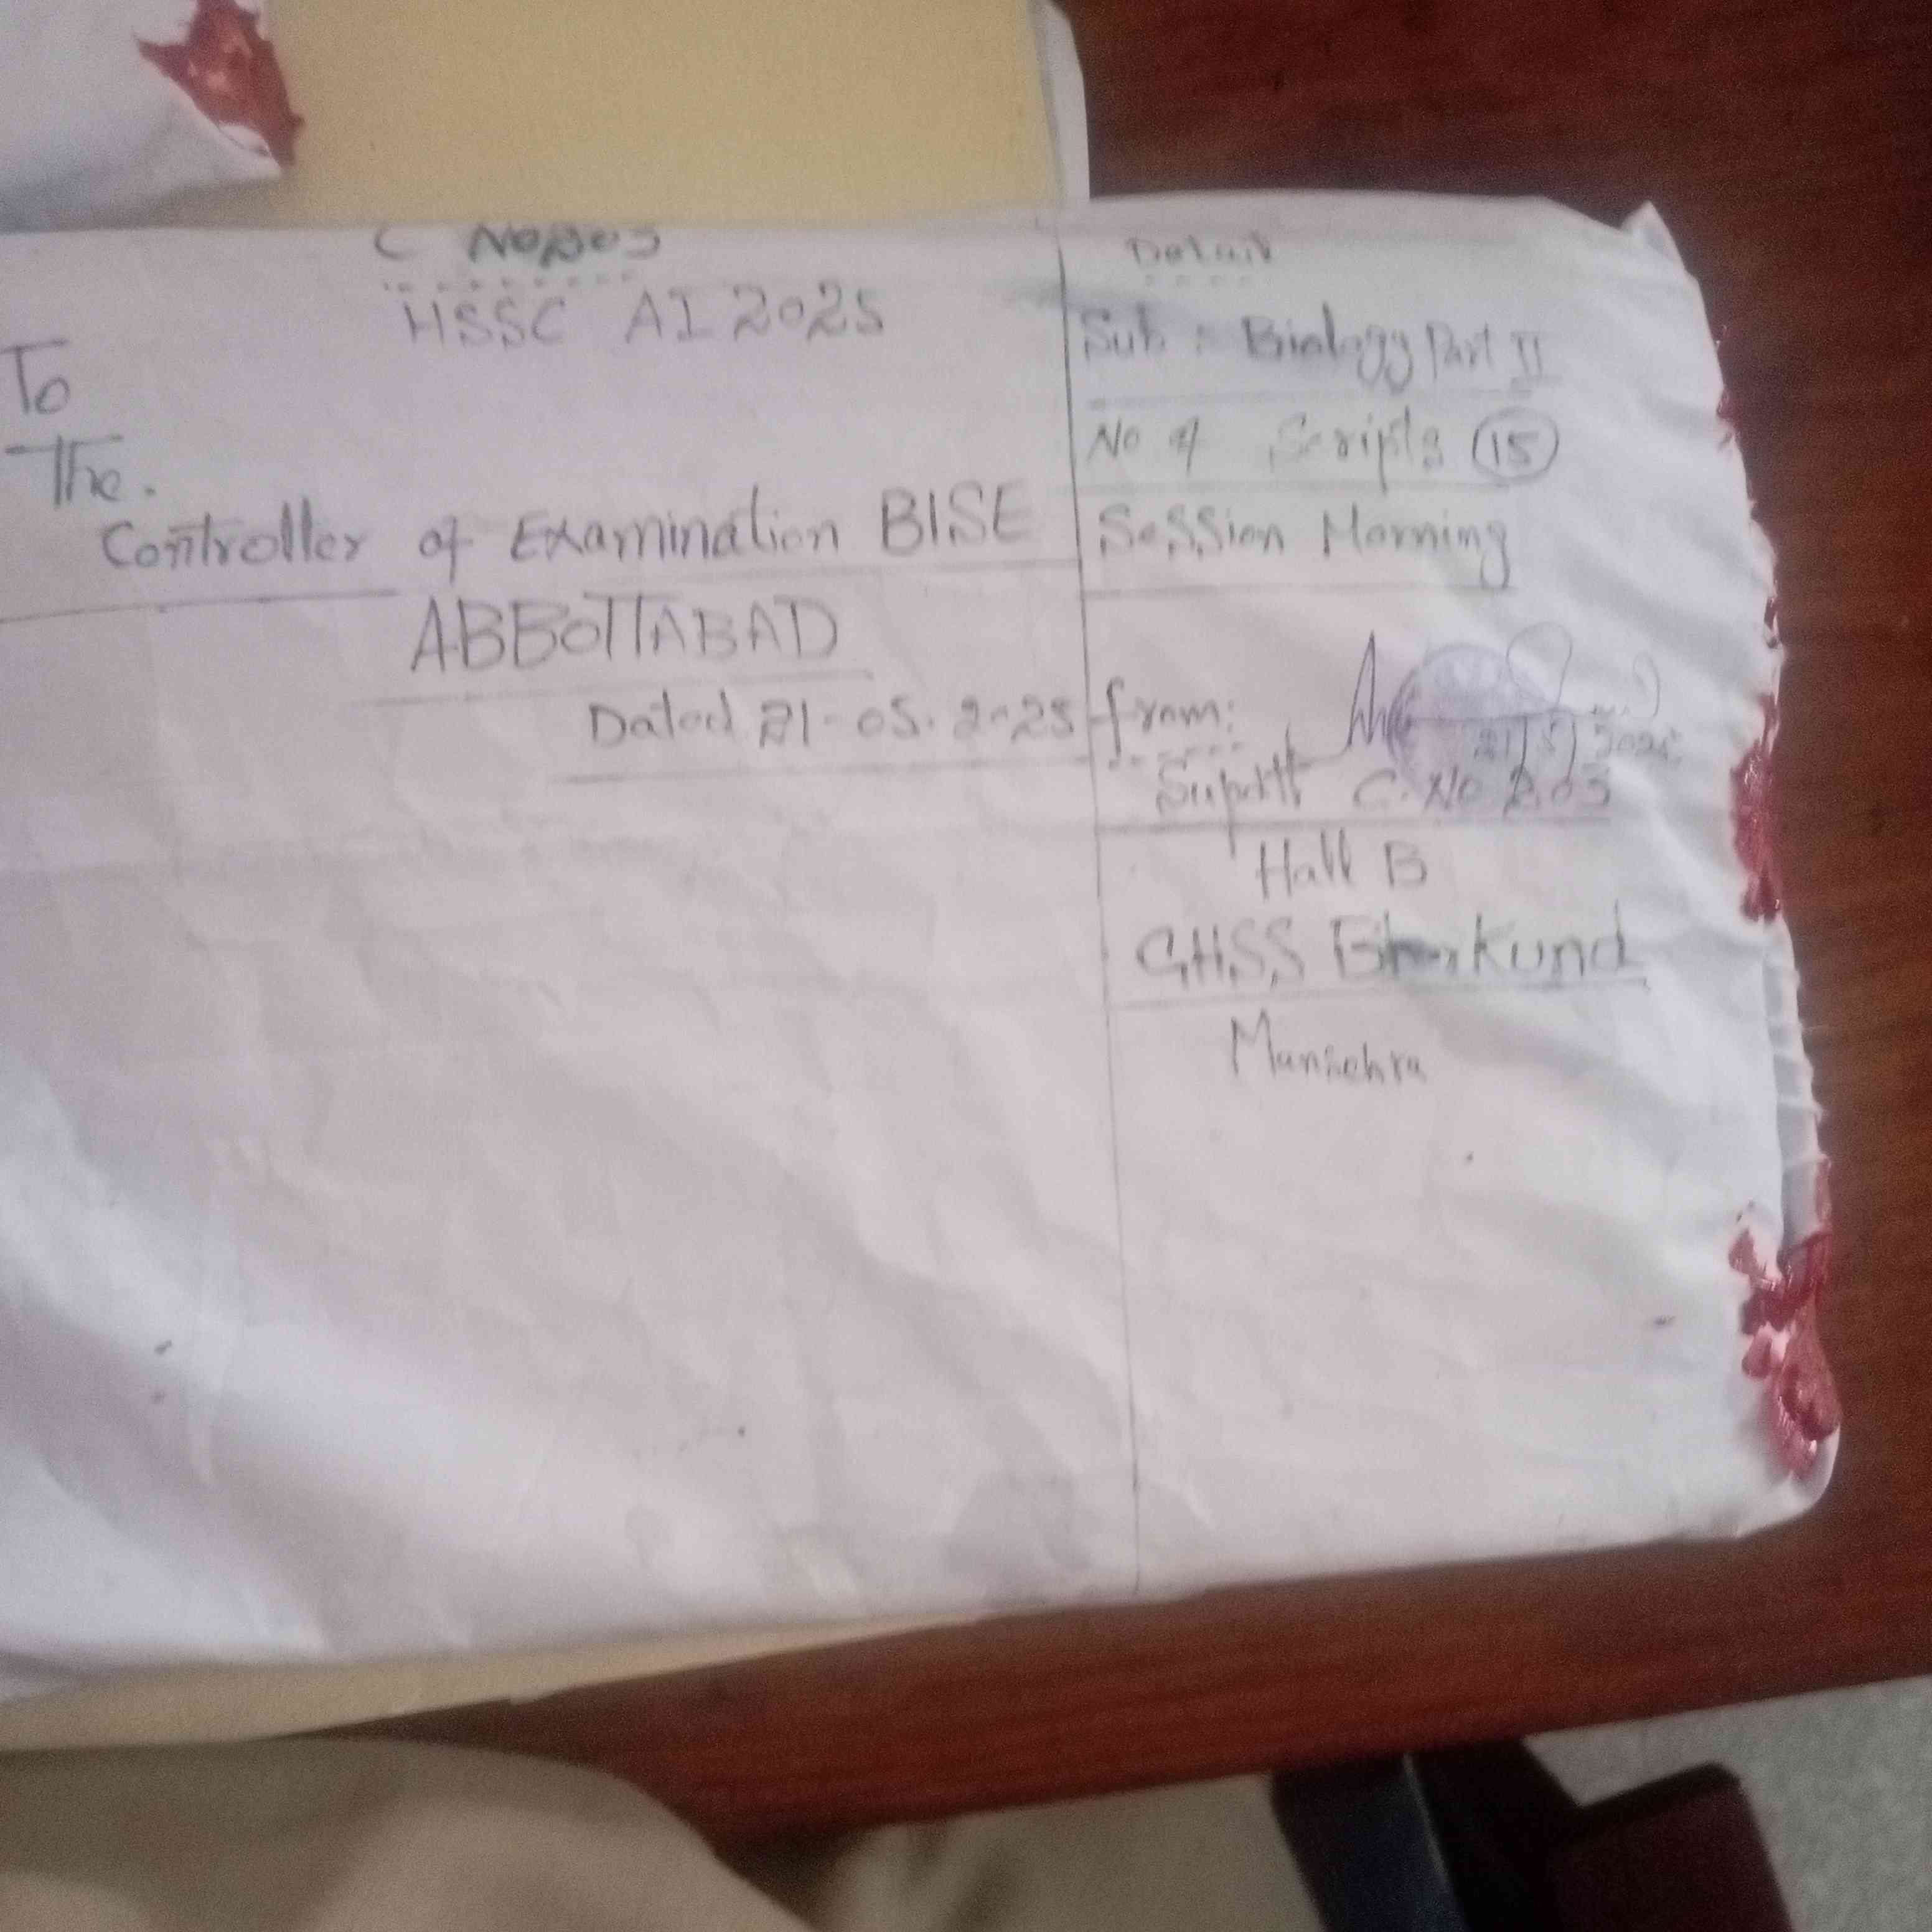 C No 203
HSSC AI 2025
To
The.
Controller of Examination BISE
ABBOTTABAD
Dated 21-05-2025
Detail
Sub: Biology Part II
No of Scripts 15
Session Morning
from:
21/5/2025
Supdtt C. No 203
Hall B
GHSS Kund
Mansehra